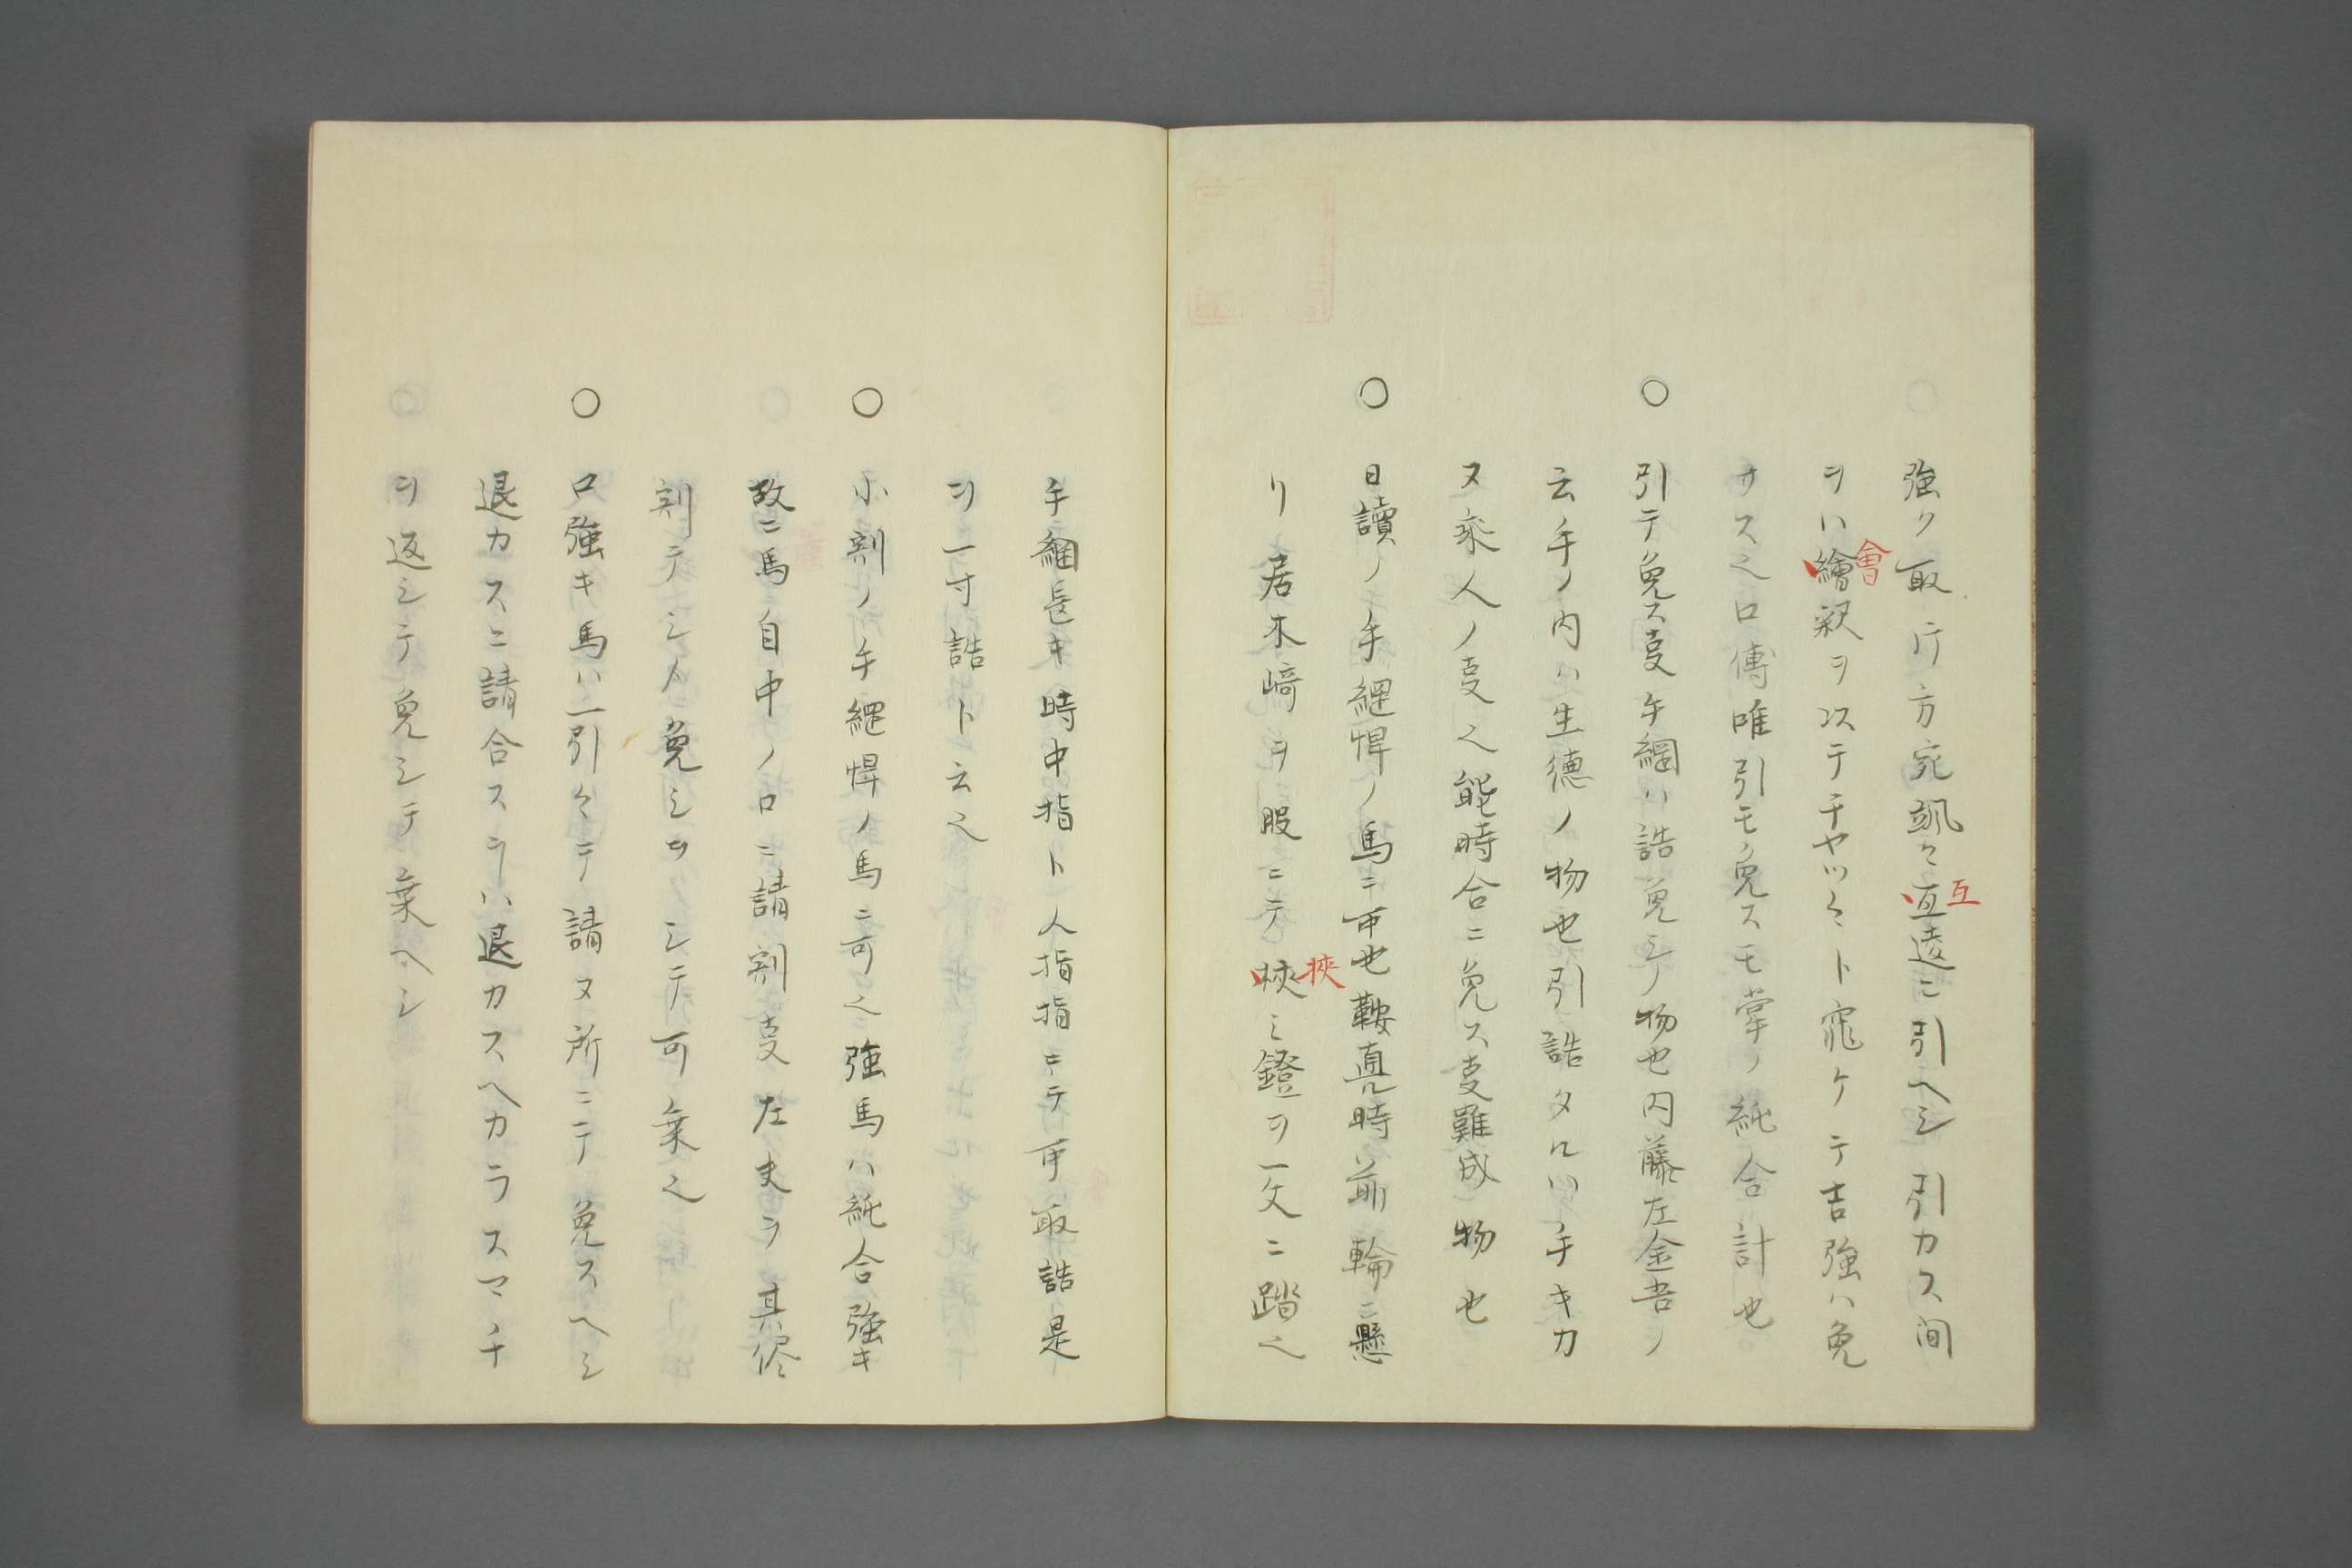 強ク取片方宛颯々亙遠ニ引ヘシ引カス間
互
ヲハ繪釈ヲ以テチヤツ〱ト寵ケテ吉強ハ免
會
サス之口傳唯引モ免スモ掌ノ純合計也
○引テ免ス㕝手綱ハ誥免シノ物也内藤左金吾ノ
云手ノ内ハ生德ノ物也引誥タルハ手キカ
ヌ乘人ノ㕝之能時合ニ免ス㕝難成物也
○日讀ノ手綱悍ノ馬ニ可也鞍直ル時前輪ニ懸
リ居木﨑ヲ股ニテ挾ミ鐙ヲ一文ニ踏之
挾
手綱長キ時中指ト人指指ニテ可取誥是
ヲ一寸誥ト云之
○小割ノ手綱悍ノ馬ニ可之強馬ハ純合強キ
故ニ馬自中ノ口ニ請割㕝左丈ラ其侭
割テシメ免シサクシテ可乗之
○口強キ馬ハ一引々テ請ヌ所ニテ免スヘシ
退カスニ請合スヲハ退カスヘカラスマヽチ
ヲ返シテ免シテ乗ヘシ